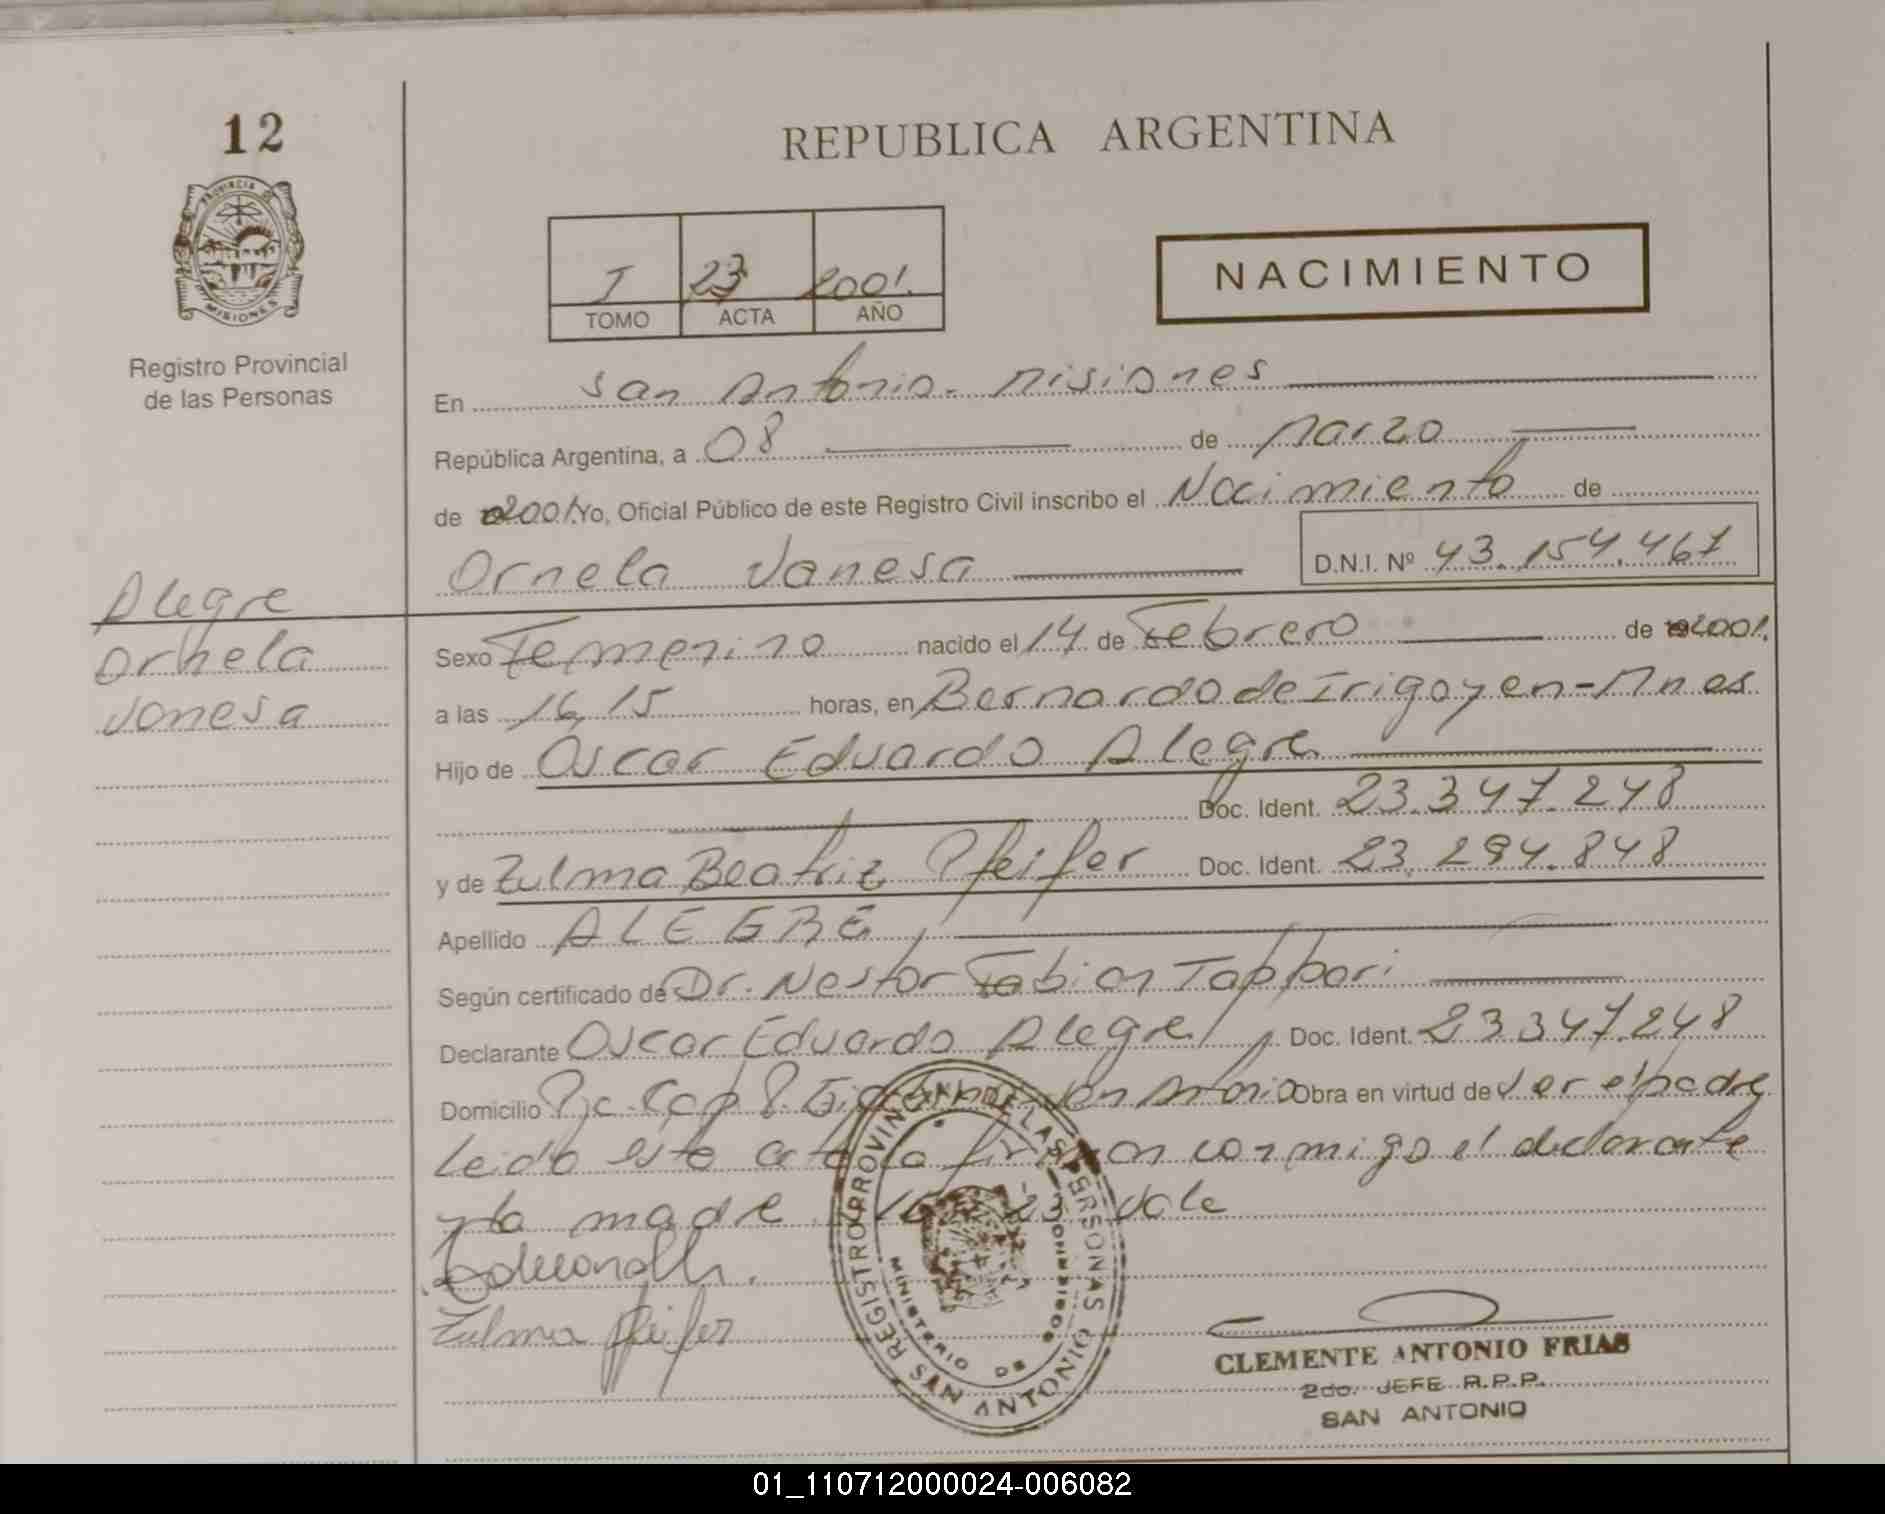 12
PROVINCIA DE
MISIONES
Registro Provincial
de las Personas
REPUBLICA ARGENTINA
I 23 2001.
TOMO ACTA AÑO
NACIMIENTO
En San Antonio - Misiones
República Argentina, a 08 de Marzo
de 2001. Yo, Oficial Público de este Registro Civil inscribo el Nacimiento de
Ornela Vanesa D.N.I. Nº 43.154.467
Alegre
Ornela
Vanesa
Sexo Femenino nacido el 14 de Febrero de 2001.
a las 16,15 horas, en Bernardo de Irigoyen - Mnes
Hijo de Oscar Eduardo Alegre
Doc. Ident. 23.347.248
y de Zulma Beatriz Pfeifer Doc. Ident. 23.294.848
Apellido ALEGRE
Según certificado de Dr. Nestor Fabian Tappari
Declarante Oscar Eduardo Alegre Doc. Ident. 23.347.248
Domicilio Pje. Cap San Antonio Obra en virtud de ser el padre
Leido este acta la firman conmigo el declarante
y la madre. 23 Vale
Zulma Pfeifer
REGISTRO PROVINCIAL DE LAS PERSONAS
MINISTERIO DE GOBIERNO
SAN ANTONIO
CLEMENTE ANTONIO FRIAS
2do. JEFE R.P.P.
SAN ANTONIO
01_110712000024-006082